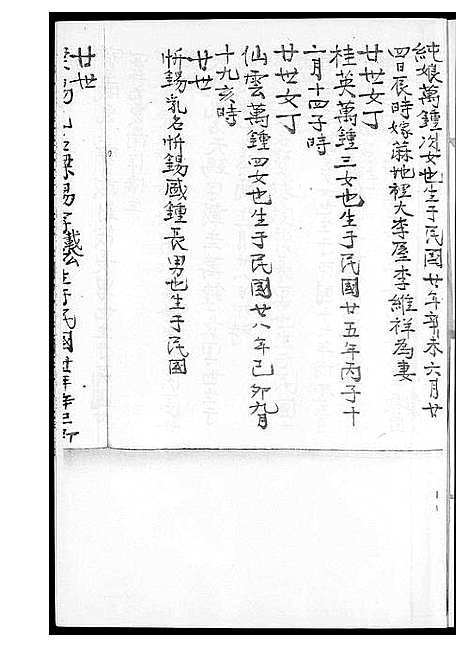 純娘萬鍾次女也生于民國廿年辛未六月廿
四日辰時嫁蔴地裡大李屋李維祥為妻
廿世女丁
桂英萬鍾三女也生于民國廿五年丙子十
二月十四子時
廿世女丁
仙雲萬鍾四女也生于民國廿八年己卯九月
十九亥時
廿世
忻錫乳名忻錫咸鍾長男也生于民國
廿世
錫字載公生于民國